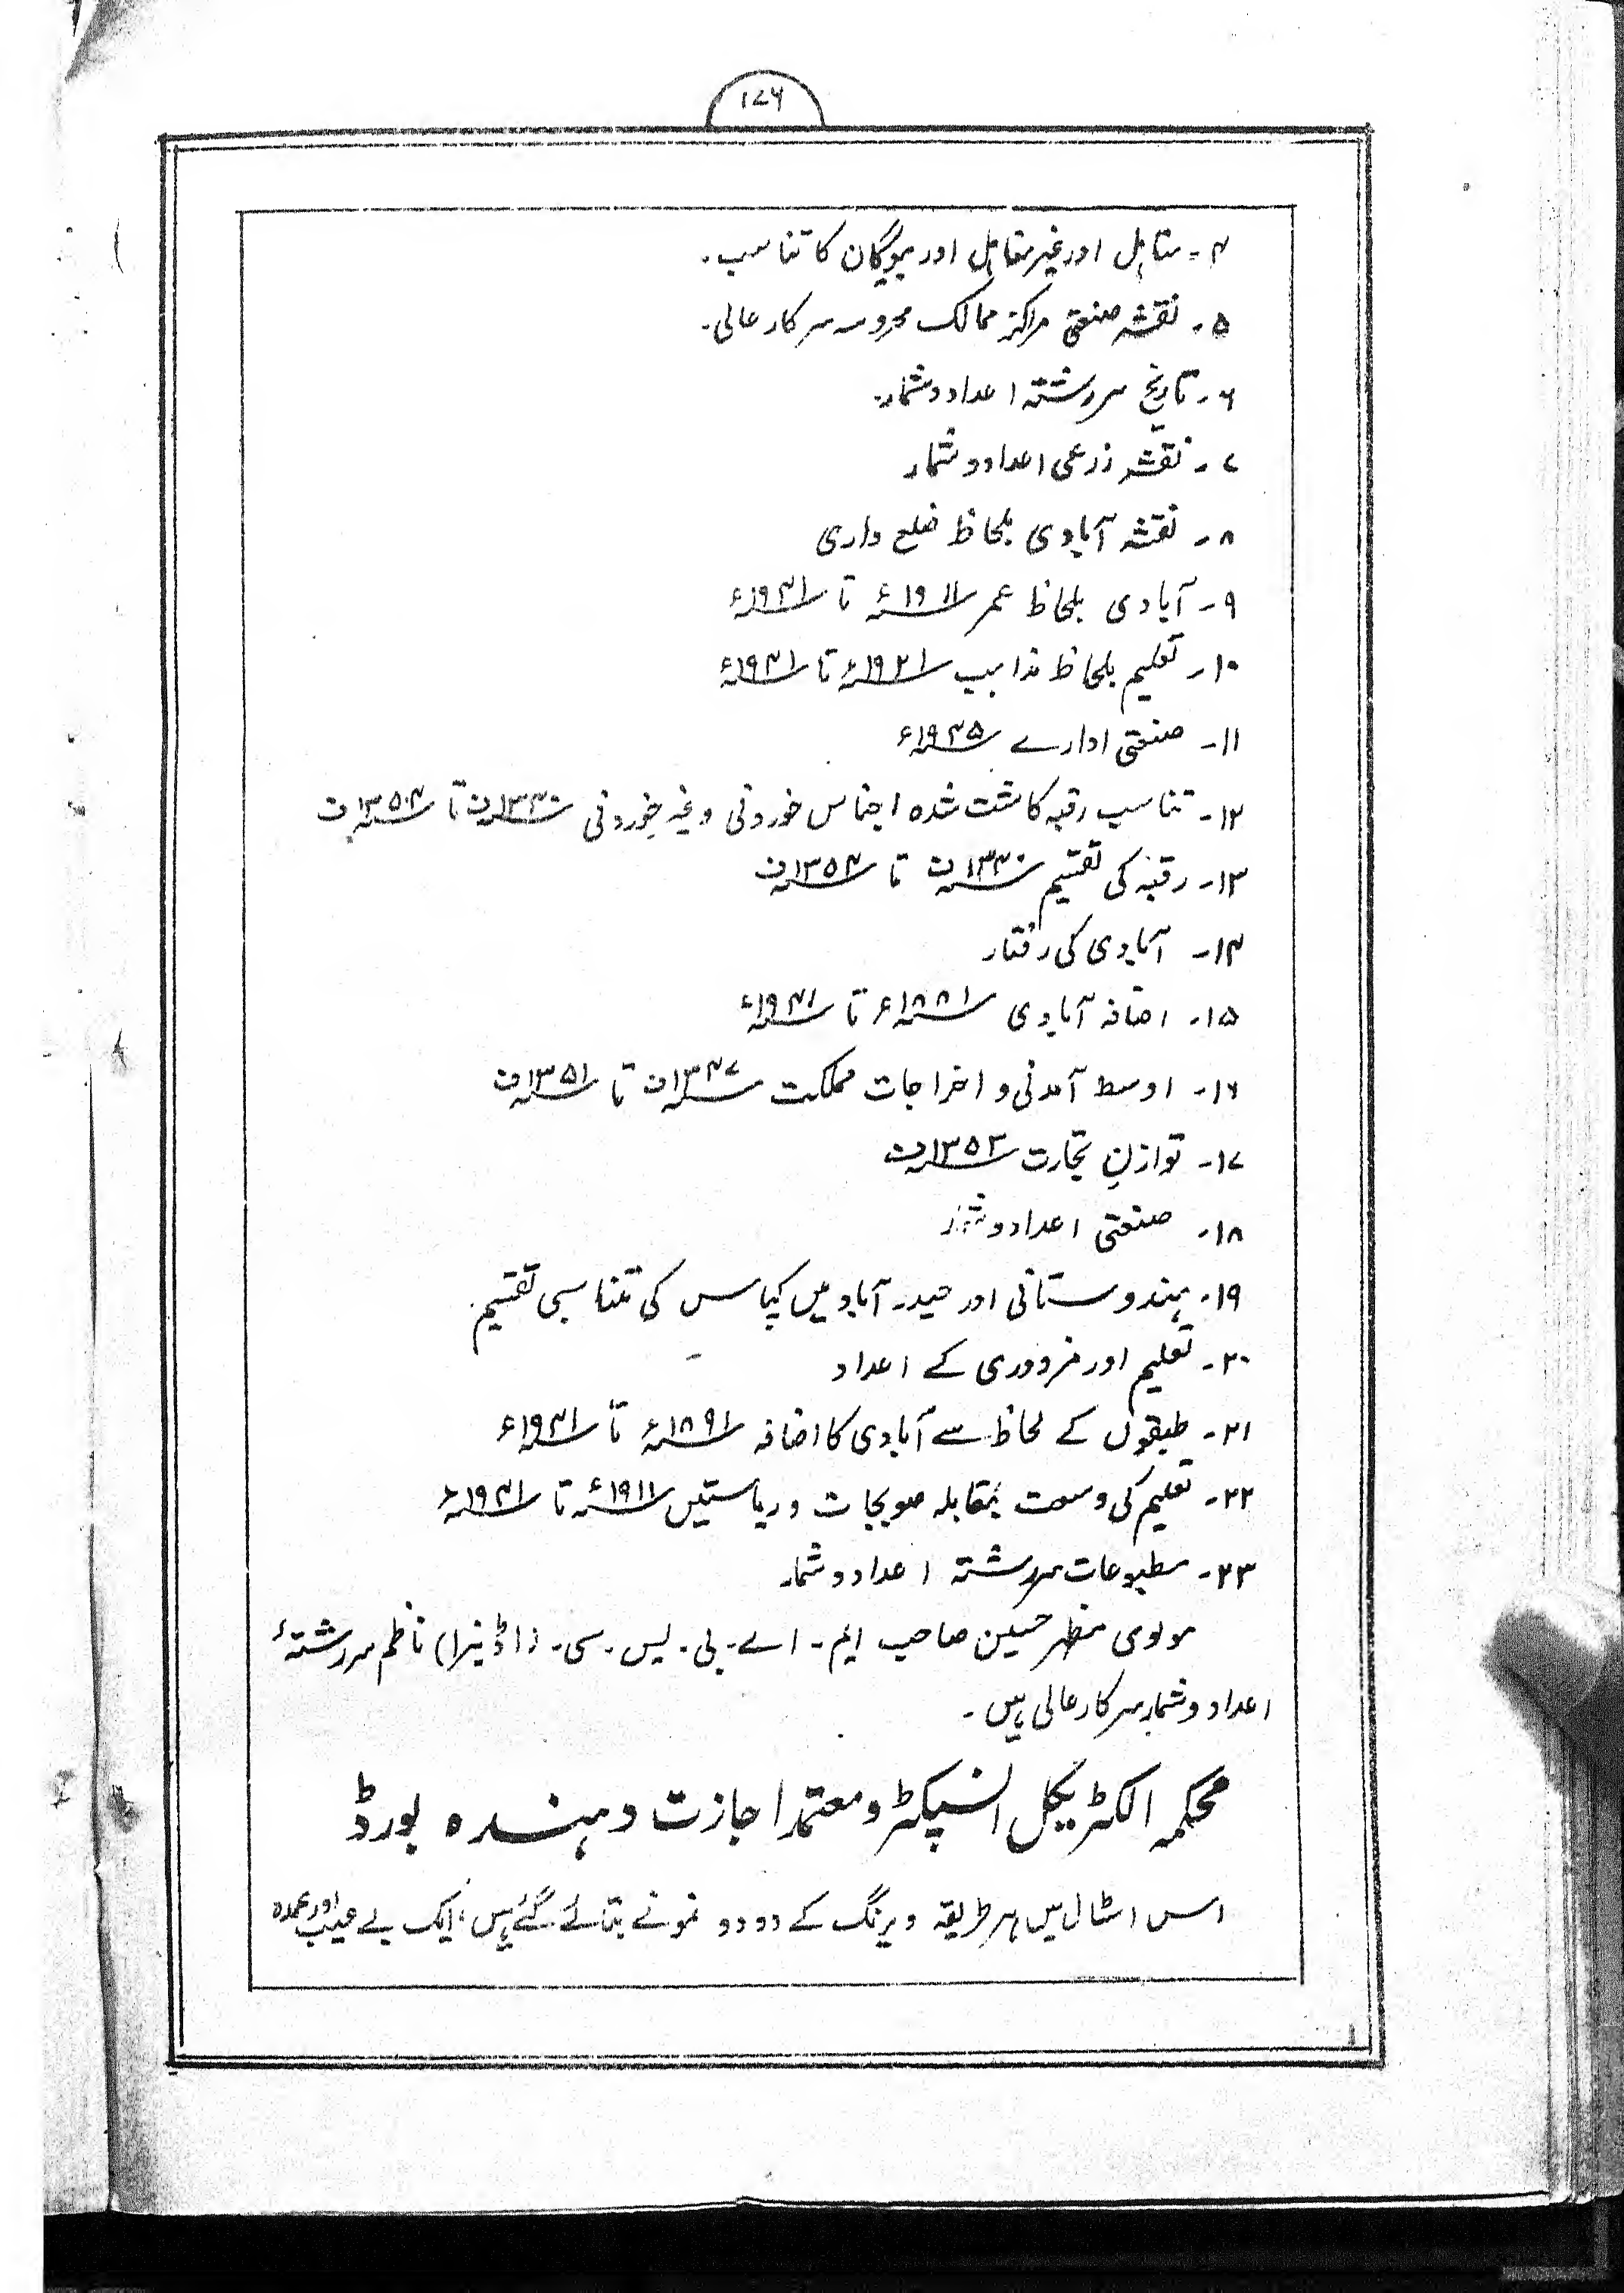 ۱۷۶
۴۔ متاہل اور غیر متاہل اور بیوگان کا تناسب۔
۵۔ نقشہ صنعتی مراکز ممالک محروسہ سرکار عالی۔
۶۔ تاریخ سررشتہ اعداد و شمار۔
۷۔ نقشہ زرعی اعداد و شمار
۸۔ نقشہ آبادی بلحاظ ضلع واری
۹۔ آبادی بلحاظ عمر ۱۹۱۱ء تا ۱۹۴۱ء
۱۰۔ تعلیم بلحاظ مذاہب ۱۹۲۱ء تا ۱۹۴۱ء
۱۱۔ صنعتی ادارے ۱۹۴۵ء
۱۲۔ تناسب رقبہ کاشت شدہ اجناس خوردنی وغیر خوردنی ۱۳۴۰ف تا ۱۳۵۴ف
۱۳۔ رقبہ کی تقسیم ۱۳۴۰ف تا ۱۳۵۴ف
۱۴۔ آبادی کی رفتار
۱۵۔ اضافہ آبادی ۱۸۸۱ء تا ۱۹۴۱ء
۱۶۔ اوسط آمدنی و اخراجات مملکت ۱۳۴۷ف تا ۱۳۵۱ف
۱۷۔ توازنِ تجارت ۱۳۵۳ف
۱۸۔ صنعتی اعداد و شمار
۱۹۔ ہندوستانی اور حیدرآباد میں کپاس کی تناسبی تقسیم۔
۲۰۔ تعلیم اور مزدوری کے اعداد
۲۱۔ طبقوں کے لحاظ سے آبادی کا اضافہ ۱۸۹۱ء تا ۱۹۴۱ء
۲۲۔ تعلیم کی وسعت بمقابلہ صوبجات و ریاستیں ۱۹۱۱ء تا ۱۹۴۱ء
۲۳۔ مطبوعات سررشتہ اعداد و شمار
مولوی مظہر حسین صاحب ایم۔ اے۔ بی۔ یس۔ سی۔ (اڈنبرا) ناظم سررشتۂ
اعداد و شمار سرکار عالی ہیں۔
محکمہ الکٹریکل انسپکٹر و معتمد اجازت دہندہ بورڈ
اس اسٹال میں ہر طریقہ ویرنگ کے دو دو نمونے بتائے گئے ہیں، ایک بے عیب اور عمدہ